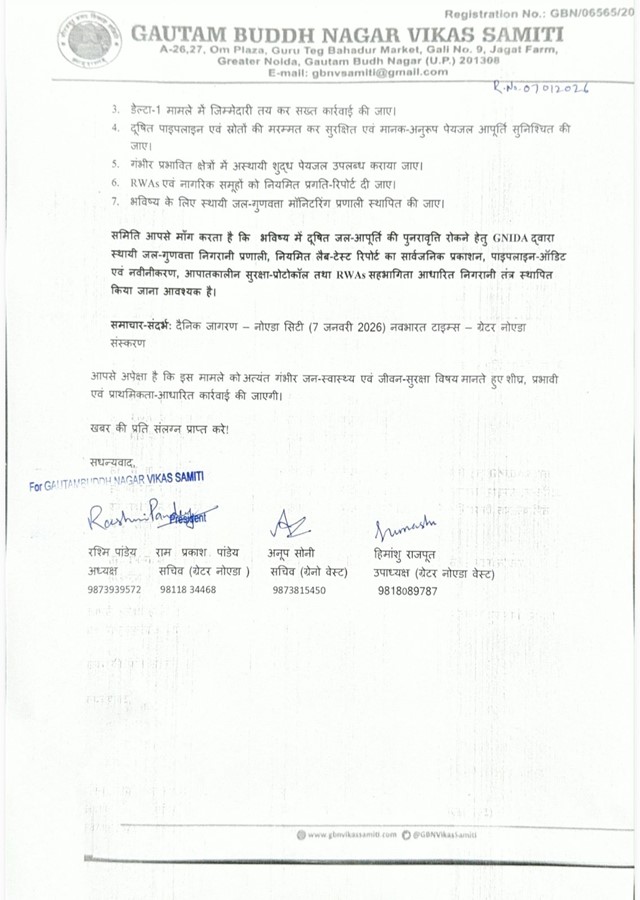 Registration No.: GBN/06565/20
GAUTAM BUDDH NAGAR VIKAS SAMITI
A-26,27, Om Plaza, Guru Teg Bahadur Market, Gali No. 9, Jagat Farm,
Greater Noida, Gautam Budh Nagar (U.P.) 201308
E-mail: gbnvsamiti@gmail.com
R.No. 07012026
3. डेल्टा-1 मामले में जिम्मेदारी तय कर सख्त कार्रवाई की जाए।
4. दूषित पाइपलाइन एवं स्रोतों की मरम्मत कर सुरक्षित एवं मानक-अनुरूप पेयजल आपूर्ति सुनिश्चित की
जाए।
5. गंभीर प्रभावित क्षेत्रों में अस्थायी शुद्ध पेयजल उपलब्ध कराया जाए।
6. RWAs एवं नागरिक समूहों को नियमित प्रगति-रिपोर्ट दी जाए।
7. भविष्य के लिए स्थायी जल-गुणवत्ता मॉनिटरिंग प्रणाली स्थापित की जाए।
समिति आपसे माँग करता है कि भविष्य में दूषित जल-आपूर्ति की पुनरावृत्ति रोकने हेतु GNIDA द्वारा
स्थायी जल-गुणवत्ता निगरानी प्रणाली, नियमित लैब-टेस्ट रिपोर्ट का सार्वजनिक प्रकाशन, पाइपलाइन-ऑडिट
एवं नवीनीकरण, आपातकालीन सुरक्षा-प्रोटोकॉल तथा RWAs सहभागिता आधारित निगरानी तंत्र स्थापित
किया जाना आवश्यक है।
समाचार-संदर्भ: दैनिक जागरण – नोएडा सिटी (7 जनवरी 2026) नवभारत टाइम्स – ग्रेटर नोएडा
संस्करण
आपसे अपेक्षा है कि इस मामले को अत्यंत गंभीर जन-स्वास्थ्य एवं जीवन-सुरक्षा विषय मानते हुए शीघ्र, प्रभावी
एवं प्राथमिकता-आधारित कार्रवाई की जाएगी।
खबर की प्रति संलग्न प्राप्त करे!
सधन्यवाद,
For GAUTAMBUDDH NAGAR VIKAS SAMITI
Rashmi Pandey
President
Himanshu
रश्मि पांडेय राम प्रकाश पांडेय अनूप सोनी हिमांशु राजपूत
अध्यक्ष सचिव (ग्रेटर नोएडा ) सचिव (ग्रेनो वेस्ट) उपाध्यक्ष (ग्रेटर नोएडा वेस्ट)
9873939572 98118 34468 9873815450 9818089787
www.gbnvikassamiti.com @GBNVikasSamiti